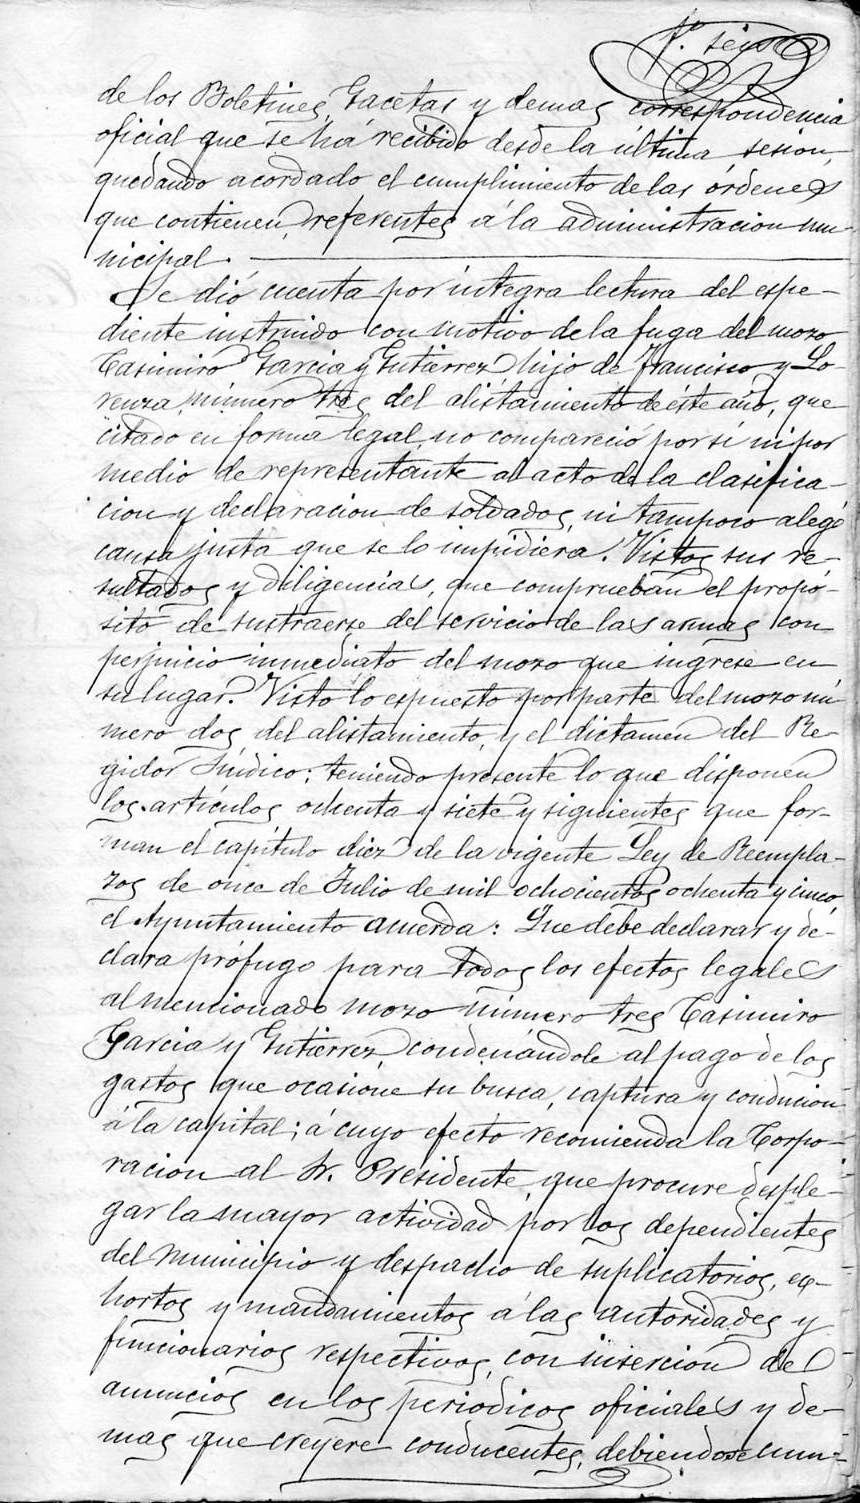 fº. seis
de los Boletines, Gacetas y demas correspondencia
oficial que se há recibido desde la última sesion,
quedando acordado el cumplimiento de las órdenes
que contienen, referentes á la administracion mu-
nicipal.
Se dió cuenta por integra lectura del espe-
diente instruido con motivo de la fuga del mozo
Casimiro Garcia y Gutierrez, hijo de Francisco y Lo-
renza, número tres del alistamiento de éste año, que
citado en forma legal no compareció por sí ni por
medio de representante al acto de la clasifica-
cion y declaracion de soldados, ni tampoco alegó
causa justa que se lo impidiera. Vistos sus re-
sultados y diligencias, que comprueban el propó-
sito de sustraerse del servicio de las armas con
perjuicio inmediato del mozo que ingrese en
su lugar. Visto lo espuesto por parte del mozo nú-
mero dos del alistamiento, y el dictamen del Re-
gidor Síndico: teniendo presente lo que disponen
los artículos ochenta y siete y siguientes que for-
man el capítulo diez de la vigente Ley de Reempla-
zos de once de Julio de mil ochocientos ochenta y cinco,
el Ayuntamiento acuerda: Que debe declarar y de-
clara prófugo para todos los efectos legales
al mencionado mozo número tres Casimiro
Garcia y Gutierrez, condenándole al pago de los
gastos que ocasione su busca, captura y conducion
á la capital; á cuyo efecto recomienda la Corpo-
racion al Sr. Presidente, que procure desple-
gar la mayor actividad por los dependientes
del Municipio y despacho de suplicatorios, ex-
hortos y mandamientos á las autoridades y
funcionarios respectivos, con insercion de
anuncios en los periodicos oficiales y de-
mas que creyere conducentes, debiendose cum-